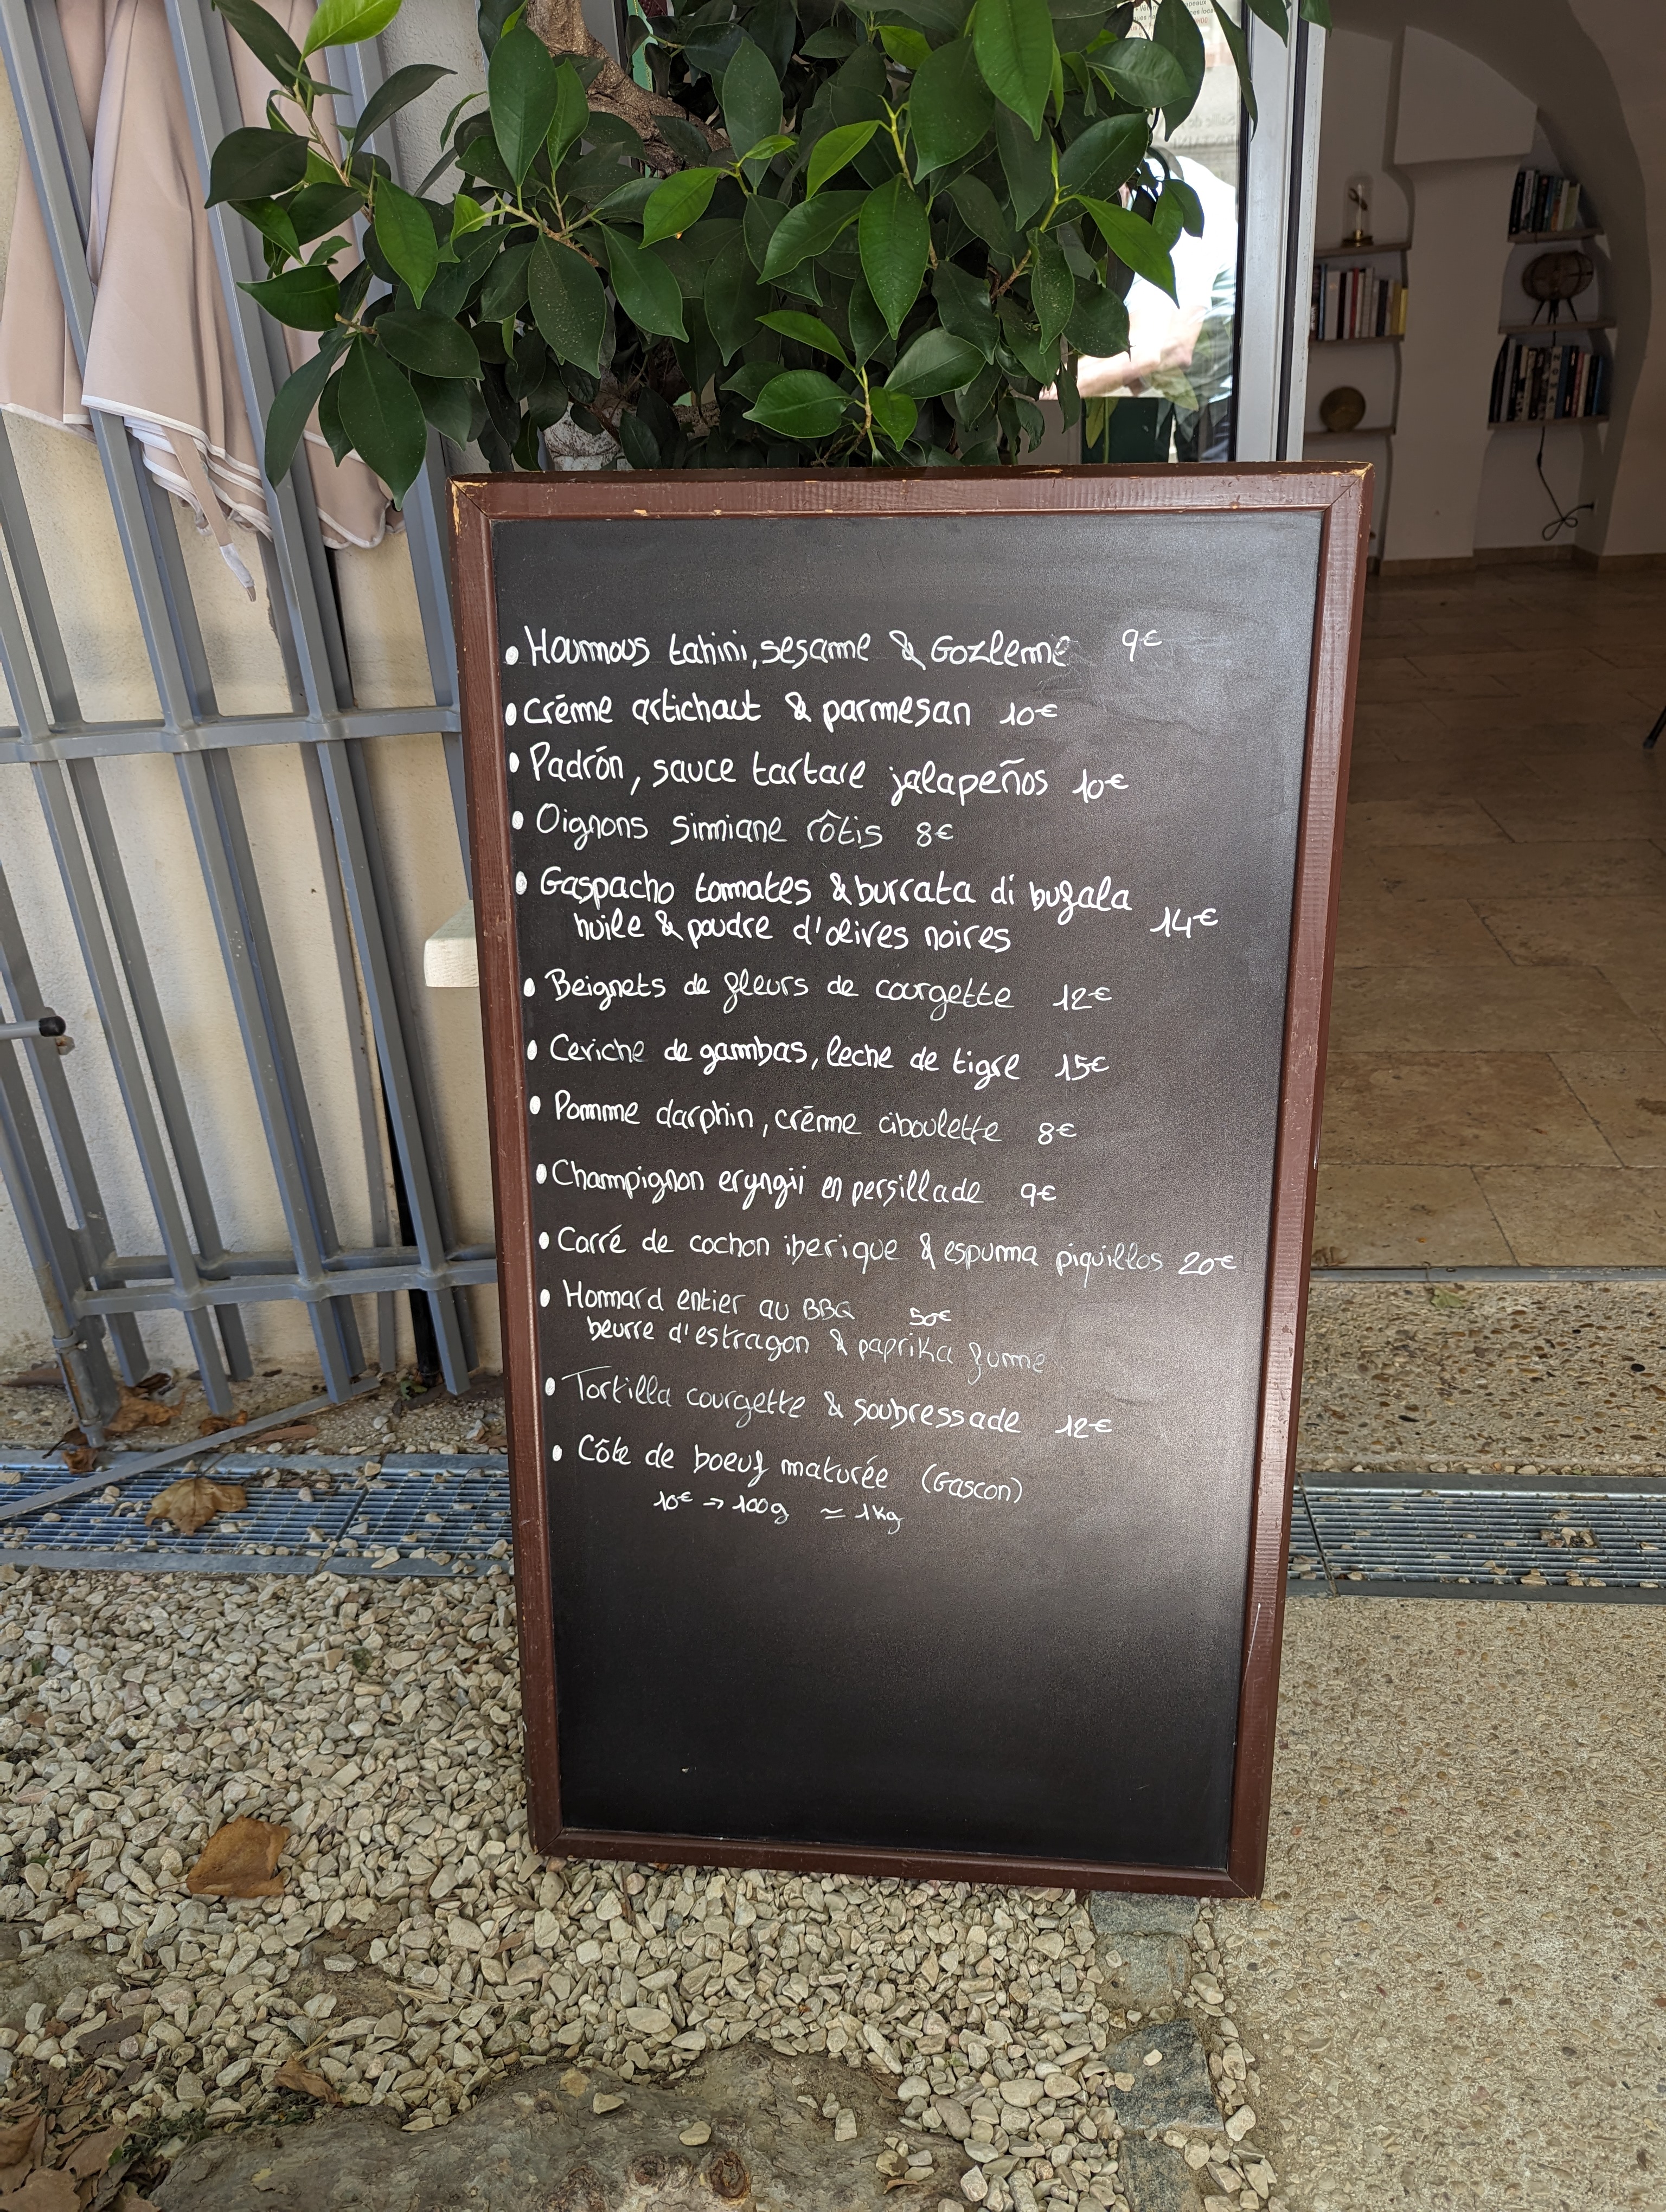 • Houmous tahini, sesame & Gozleme 9€
• Crème artichaut & parmesan 10€
• Padrón, sauce tartare jalapeños 10€
• Oignons Simiane rôtis 8€
• Gaspacho tomates & burrata di bufala 14€
huile & poudre d'olives noires
• Beignets de fleurs de courgette 12€
• Ceviche de gambas, leche de tigre 15€
• Pomme darphin, crème ciboulette 8€
• Champignon eryngii en persillade 9€
• Carré de cochon iberique & espuma piquillos 20€
• Homard entier au BBQ 50€
beurre d'estragon & paprika fumé
• Tortilla courgette & soubressade 12€
• Côte de boeuf maturée (Gascon)
10€ → 100g ≃ 1kg